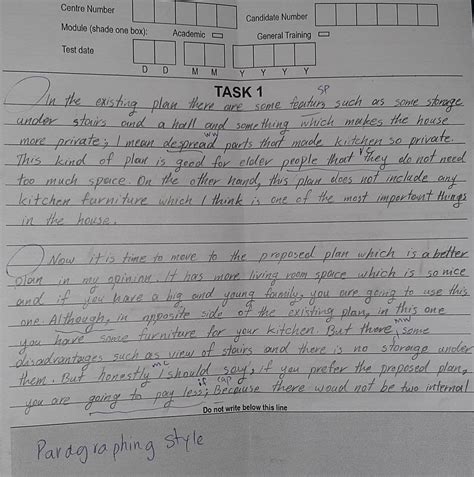 Centre Number
Candidate Number
Module (shade one box):
Academic
General Training
Test date
D D M M Y Y Y Y
TASK 1
SP
In the existing plan there are some featurs such as some storage
under stairs and a hall and something which makes the house
ww
more private; I mean despread parts that made kitchen so private.
This kind of plan is good for older people that they do not need
too much space. On the other hand, this plan does not include any
kitchen furniture which I think is one of the most important things
in the house.
Now it is time to move to the proposed plan which is a better
plan in my opinion. It has more living room space which is so nice
and if you have a big and young family, you are going to use this
one. Although, in opposite side of the existing plan, in this one
mw
you have some furniture for your kitchen. But there some
disadvantages such as view of stairs and there is no storage under
them. But honestly I should say, if you prefer the proposed plan,
if cap
you are going to pay less; Because there woud not be two internal
Do not write below this line
Paragraphing style